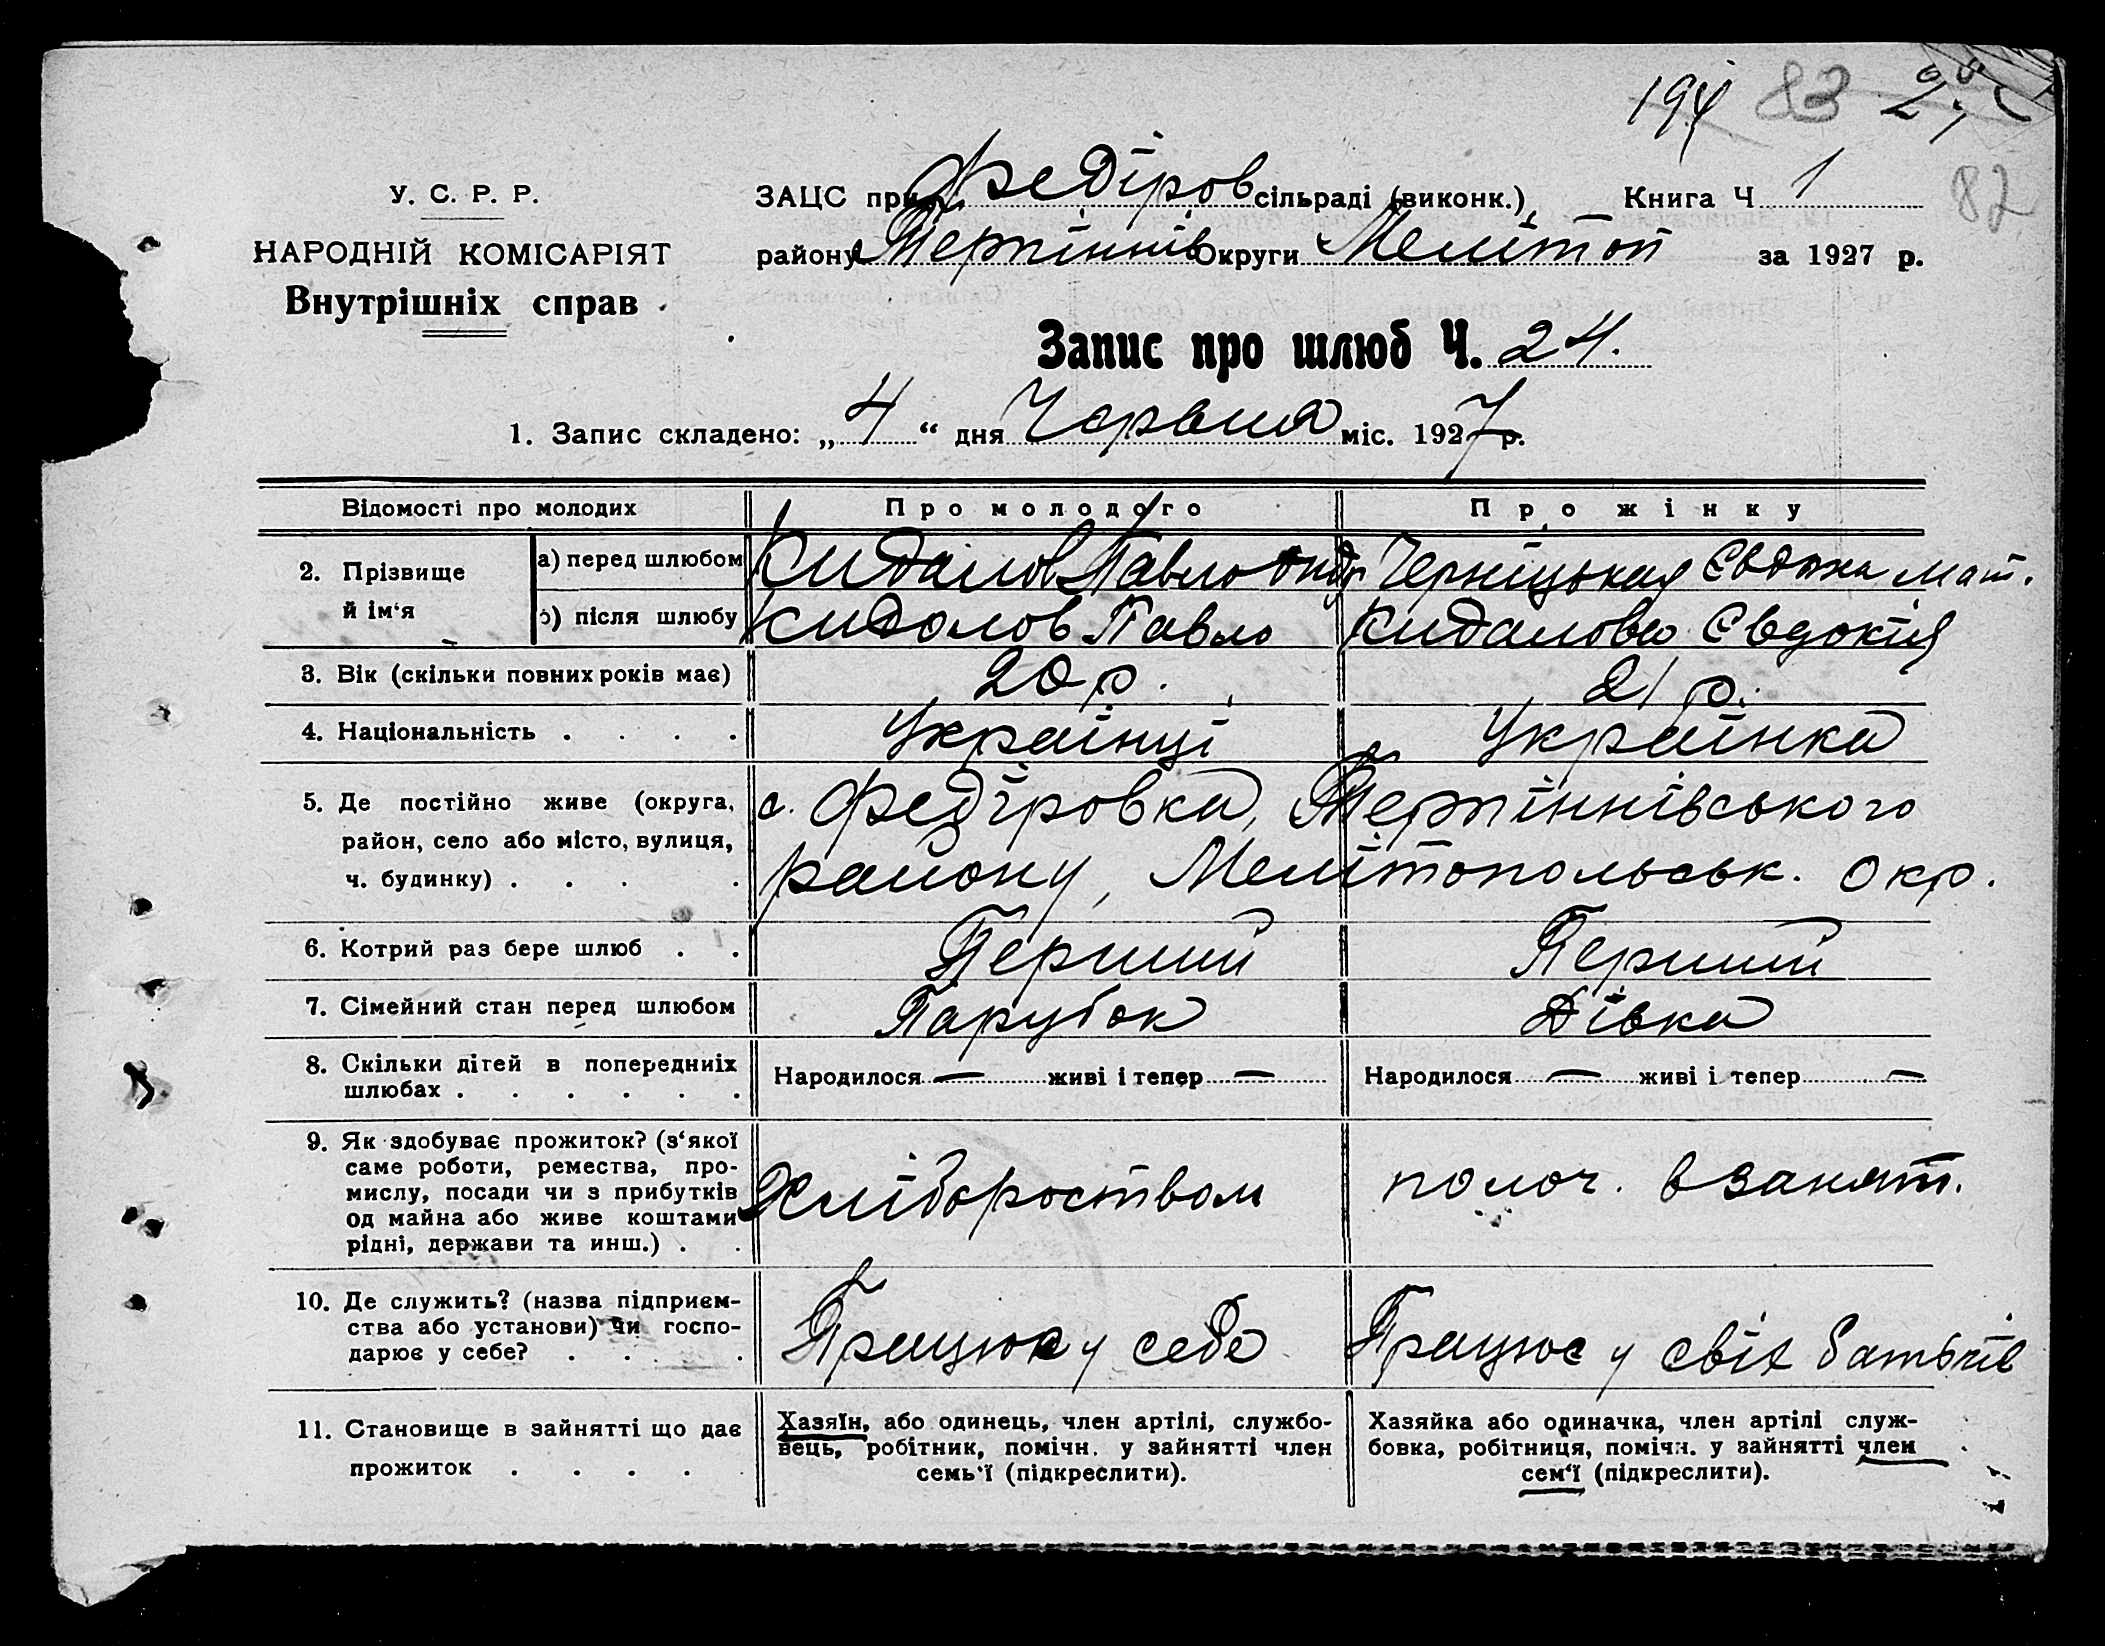 83
82
У. С. Р. Р.
НАРОДНІЙ КОМІСАРІЯТ
Внутрішніх справ
ЗАЦС при Федіров сільраді (виконк.), Книга Ч 1
району Терпіннів Округи Мелітоп за 1927 р.
Запис про шлюб Ч. 24.
1. Запис складено: „ 4 “ дня Червня міс. 1927 р.
Відомості про молодих Про молодого Про жінку
2. Прізвище й ім‘я
а) перед шлюбом Кидалов Павло Чернїцькая Мат.
б) після шлюбу Кидолов Павло Кидалова Євдокія
3. Вік (скільки повних років має) 20 р. 21 р.
4. Національність . . . . Українці Українка
5. Де постійно живе (округа, с. Федіровка, Терпіннівського
район, село або місто, вулиця, району, Мелітопольськ. окр.
ч. будинку) . . . .
6. Котрий раз бере шлюб . . Перший Перший
7. Сімейний стан перед шлюбом Парубок Дівка
8. Скільки дітей в попередніх Народилося — живі і тепер — Народилося — живі і тепер —
шлюбах . . . . . .
9. Як здобуває прожиток? (з‘якої
саме роботи, ремества, про-
мислу, посади чи з прибутків Хліборобством помоч. в занят.
од майна або живе коштами
рідні, держави та инш.) . .
10. Де служить? (назва підприєм-
ства або установи) чи госпо- Працює у себе Працює у свіх батьків
дарює у себе? . . . .
11. Становище в зайнятті що дає
прожиток . . . .
Хазяїн, або одинець, член артілі, службо-
вець, робітник, помічн. у зайнятті член
семь‘ї (підкреслити).
Хазяйка або одиначка, член артілі служ-
бовка, робітниця, помічн. у зайнятті член
сем‘ї (підкреслити).